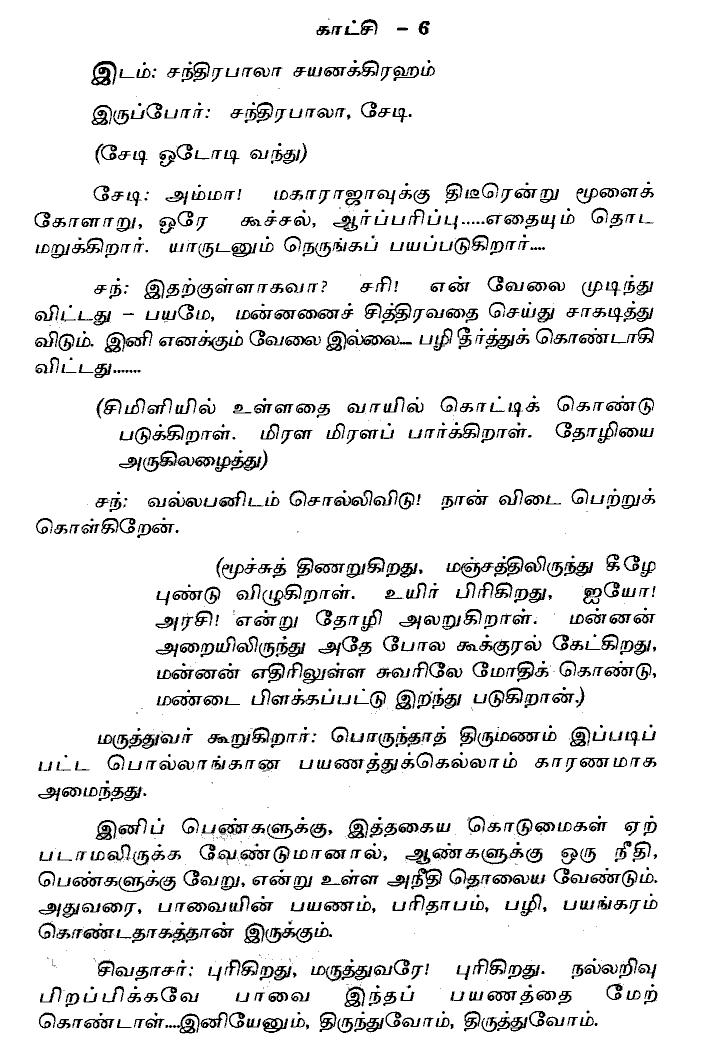 காட்சி – 6
இடம்: சந்திரபாலா சயனக்கிரஹம்
இருப்போர்: சந்திரபாலா, சேடி.
(சேடி ஒடோடி வந்து)
சேடி: அம்மா! மகாராஜாவுக்கு திடீரென்று மூளைக்
கோளாறு, ஒரே கூச்சல், ஆர்ப்பரிப்பு.....எதையும் தொட
மறுக்கிறார். யாருடனும் நெருங்கப் பயப்படுகிறார்....
சந்: இதற்குள்ளாகவா? சரி! என் வேலை முடிந்து
விட்டது – பயமே, மன்னனைச் சித்திரவதை செய்து சாகடித்து
விடும். இனி எனக்கும் வேலை இல்லை.... பழி தீர்த்துக் கொண்டாகி
விட்டது.......
(சிமிளியில் உள்ளதை வாயில் கொட்டிக் கொண்டு
படுக்கிறாள். மிரள மிரளப் பார்க்கிறாள். தோழியை
அருகிலழைத்து)
சந்: வல்லபனிடம் சொல்லிவிடு! நான் விடை பெற்றுக்
கொள்கிறேன்.
(மூச்சுத் திணறுகிறது, மஞ்சத்திலிருந்து கீழே
புண்டு விழுகிறாள். உயிர் பிரிகிறது, ஐயோ!
அரசி! என்று தோழி அலறுகிறாள். மன்னன்
அறையிலிருந்து அதே போல கூக்குரல் கேட்கிறது,
மன்னன் எதிரிலுள்ள சுவரிலே மோதிக் கொண்டு,
மண்டை பிளக்கப்பட்டு இறந்து படுகிறான்.)
மருத்துவர் கூறுகிறார்: பொருந்தாத் திருமணம் இப்படிப்
பட்ட பொல்லாங்கான பயணத்துக்கெல்லாம் காரணமாக
அமைந்தது.
இனிப் பெண்களுக்கு, இத்தகைய கொடுமைகள் ஏற்
படாமலிருக்க வேண்டுமானால், ஆண்களுக்கு ஒரு நீதி,
பெண்களுக்கு வேறு, என்று உள்ள அநீதி தொலைய வேண்டும்.
அதுவரை, பாவையின் பயணம், பரிதாபம், பழி, பயங்கரம்
கொண்டதாகத்தான் இருக்கும்.
சிவதாசர்: புரிகிறது, மருத்துவரே! புரிகிறது. நல்லறிவு
பிறப்பிக்கவே பாவை இந்தப் பயணத்தை மேற்
கொண்டாள்....இனியேனும், திருந்துவோம், திருத்துவோம்.